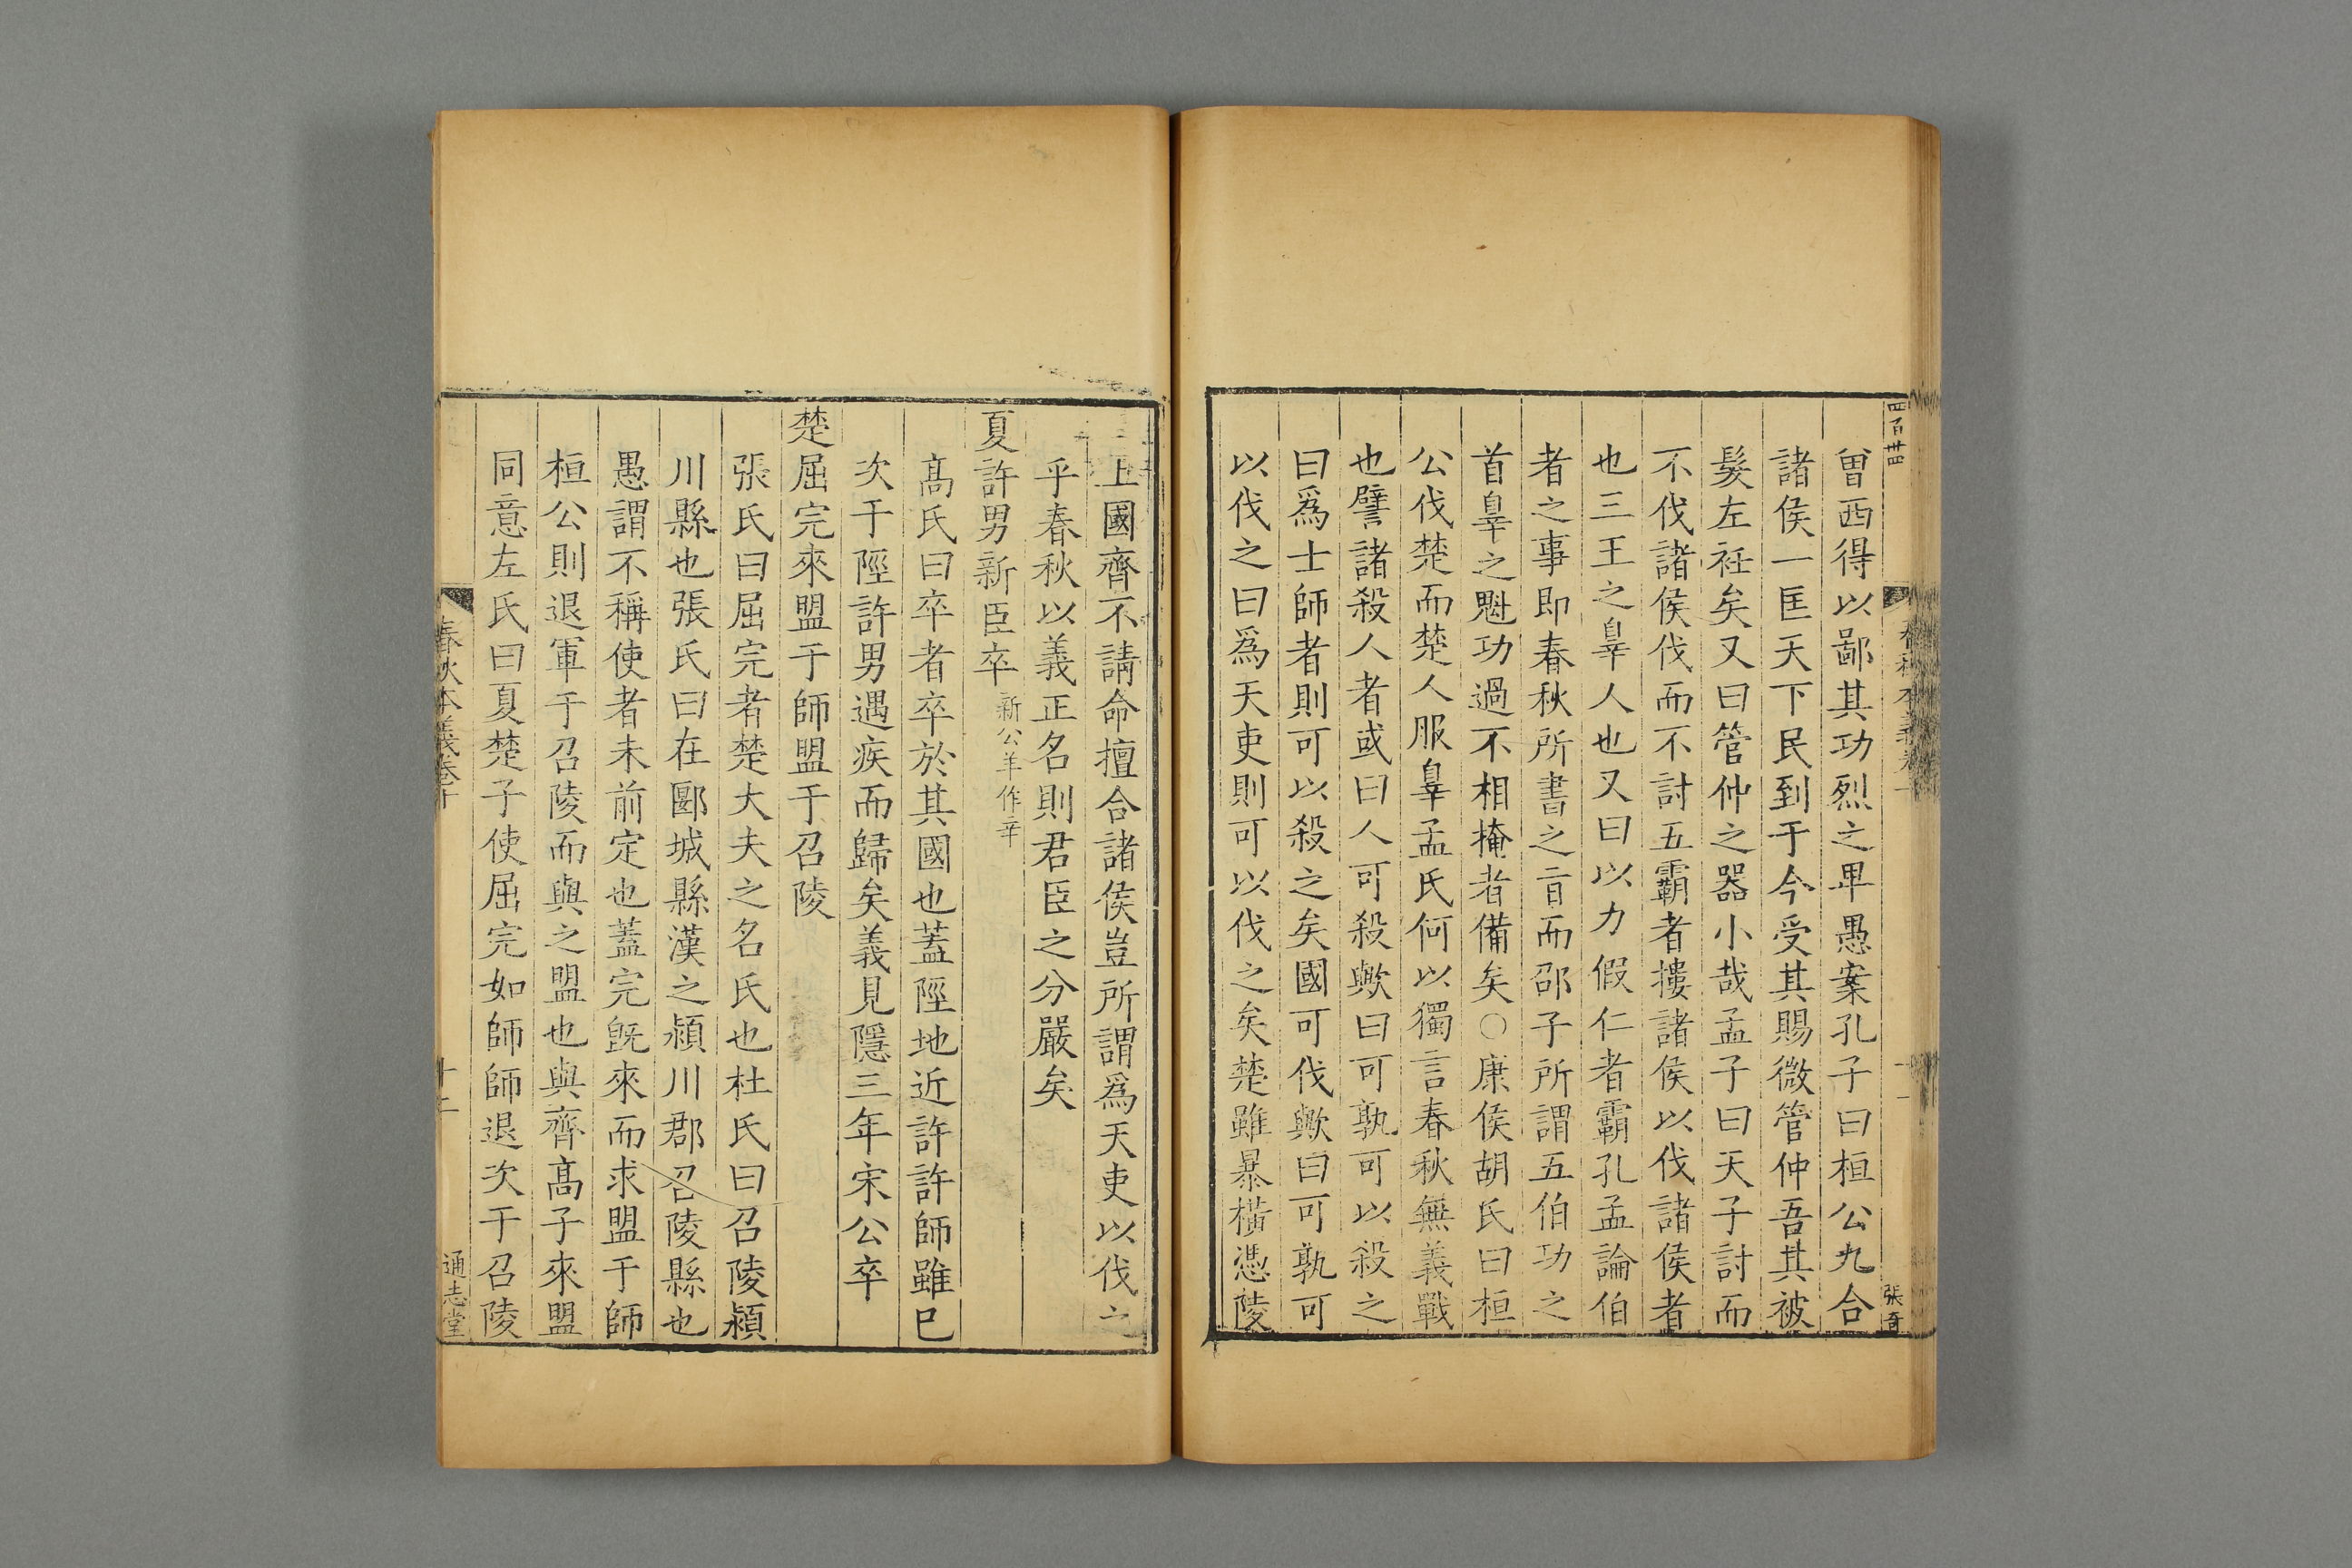 四百卌四
張奇
曾西得以鄙其功烈之卑愚案孔子曰桓公九合
諸侯一匡天下民到于今受其賜微管仲吾其被
髮左衽矣又曰管仲之器小哉孟子曰天子討而
不伐諸侯伐而不討五霸者摟諸侯以伐諸侯者
也三王之辠人也又曰以力假仁者霸孔孟論伯
者之事即春秋所書之旨而邵子所謂五伯功之
首辠之魁功過不相掩者備矣○康侯胡氏曰桓
公伐楚而楚人服辠孟氏何以獨言春秋無義戰
也譬諸殺人者或曰人可殺歟曰可孰可以殺之
曰爲士師者則可以殺之矣國可伐歟曰可孰可
以伐之曰爲天吏則可以伐之矣楚雖暴橫憑陵
上國齊不請命擅合諸侯豈所謂爲天吏以伐之
乎春秋以義正名則君臣之分嚴矣
夏許男新臣卒新公羊作辛
高氏曰卒者卒於其國也蓋陘地近許許師雖已
次于陘許男遇疾而歸矣義見隱三年宋公卒
楚屈完來盟于師盟于召陵
張氏曰屈完者楚大夫之名氏也杜氏曰召陵潁
川縣也張氏曰在郾城縣漢之潁川郡召陵縣也
愚謂不稱使者未前定也蓋完旣來而求盟于師
桓公則退軍于召陵而與之盟也與齊高子來盟
同意左氏曰夏楚子使屈完如師師退次于召陵
春秋本義卷十
十二
通志堂